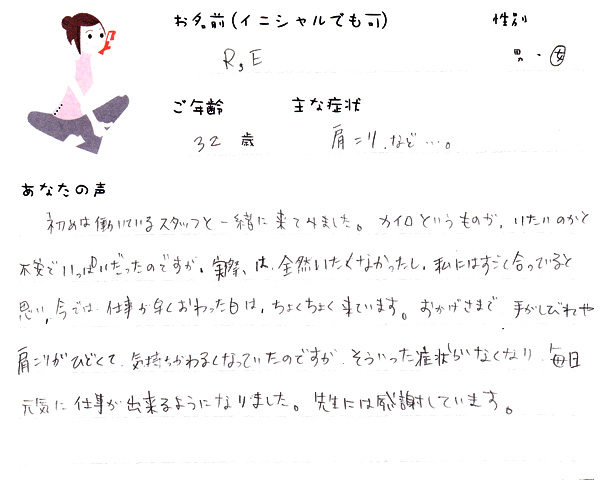 お名前(イニシャルでも可) 性別
R,E 男・女
ご年齢 主な症状
32 歳 肩こり、など…。
あなたの声
初めは働いているスタッフと一緒に来てみました。カイロというものが、いたいのかと
不安でいっぱいだったのですが、実際、は、全然いたくなかったし、私にはすごく合っていると
思い、今では、仕事が早くおわった日は、ちょくちょく来ています。おかげさまで 手がしびれや
肩こりがひどくて、気持ちがわるくなっていたのですが、そういった症状がなくなり、毎日
元気に仕事が出来るようになりました。先生には感謝しています。